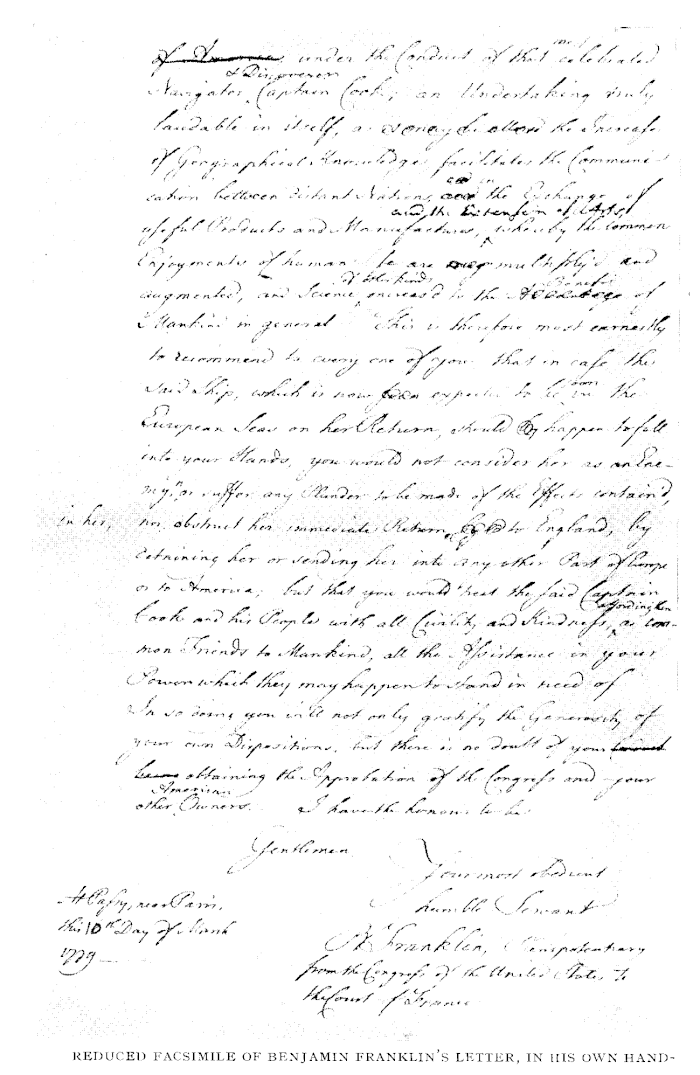 of America, under the Conduct of that most celebrated
Navigator & Discoverer Captain Cook; an Undertaking truly
laudable in itself, as the Increase
of Geographical Knowledge facilitates the Communi-
cation between distant Nations, in the Exchange of
useful Products and Manufactures, and the Extension of Arts, whereby the common
Enjoyments of human Life are multiply'd and
augmented, and Science of other kinds increas'd to the Benefit of
Mankind in general This is therefore most earnestly
to recommend to every one of you that in case the
said Ship, which is now expected to be soon in the
European Seas on her Return, should happen to fall
into your Hands, you would not consider her as an Ene-
my, nor suffer any Plunder to be made of the Effects contain'd
in her, nor obstruct her immediate Return to England, by
detaining her or sending her into any other Part of Europe
or to America; but that you would treat the said Captain
Cook and his People with all Civility and Kindness, affording them as com-
mon Friends to Mankind, all the Assistance in your
Power which they may happen to stand in need of
In so doing you will not only gratify the Generosity of
your own Dispositions, but there is no doubt of your
obtaining the Approbation of the Congress and your
other American Owners. I have the honour to be
Gentlemen
Your most obedient
humble Servant
At Passy, near Paris,
this 10th Day of March
1779
B Franklin, Plenipotentiary
from the Congress of the United States to
the Court of France
REDUCED FACSIMILE OF BENJAMIN FRANKLIN'S LETTER, IN HIS OWN HAND-